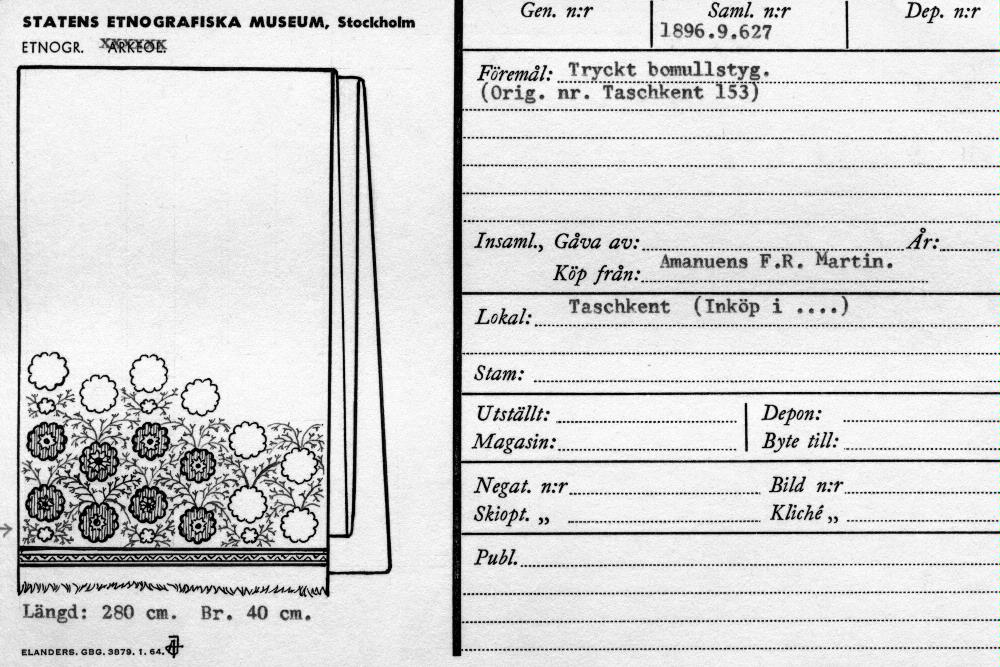 STATENS ETNOGRAFISKA MUSEUM, Stockholm
ETNOGR. ARKEOL.
Längd: 280 cm. Br. 40 cm.
ELANDERS. GBG. 3879. 1. 64.
Gen. n:r Saml. n:r Dep. n:r
1896.9.627
Föremål: Tryckt bomullstyg.
(Orig. nr. Taschkent 153)
Insaml., Gåva av: År:
Köp från: Amanuens F.R. Martin.
Lokal: Taschkent (Inköp i ....)
Stam:
Utställt: Depon:
Magasin: Byte till:
Negat. n:r Bild n:r
Skiopt. „ Kliché „
Publ.